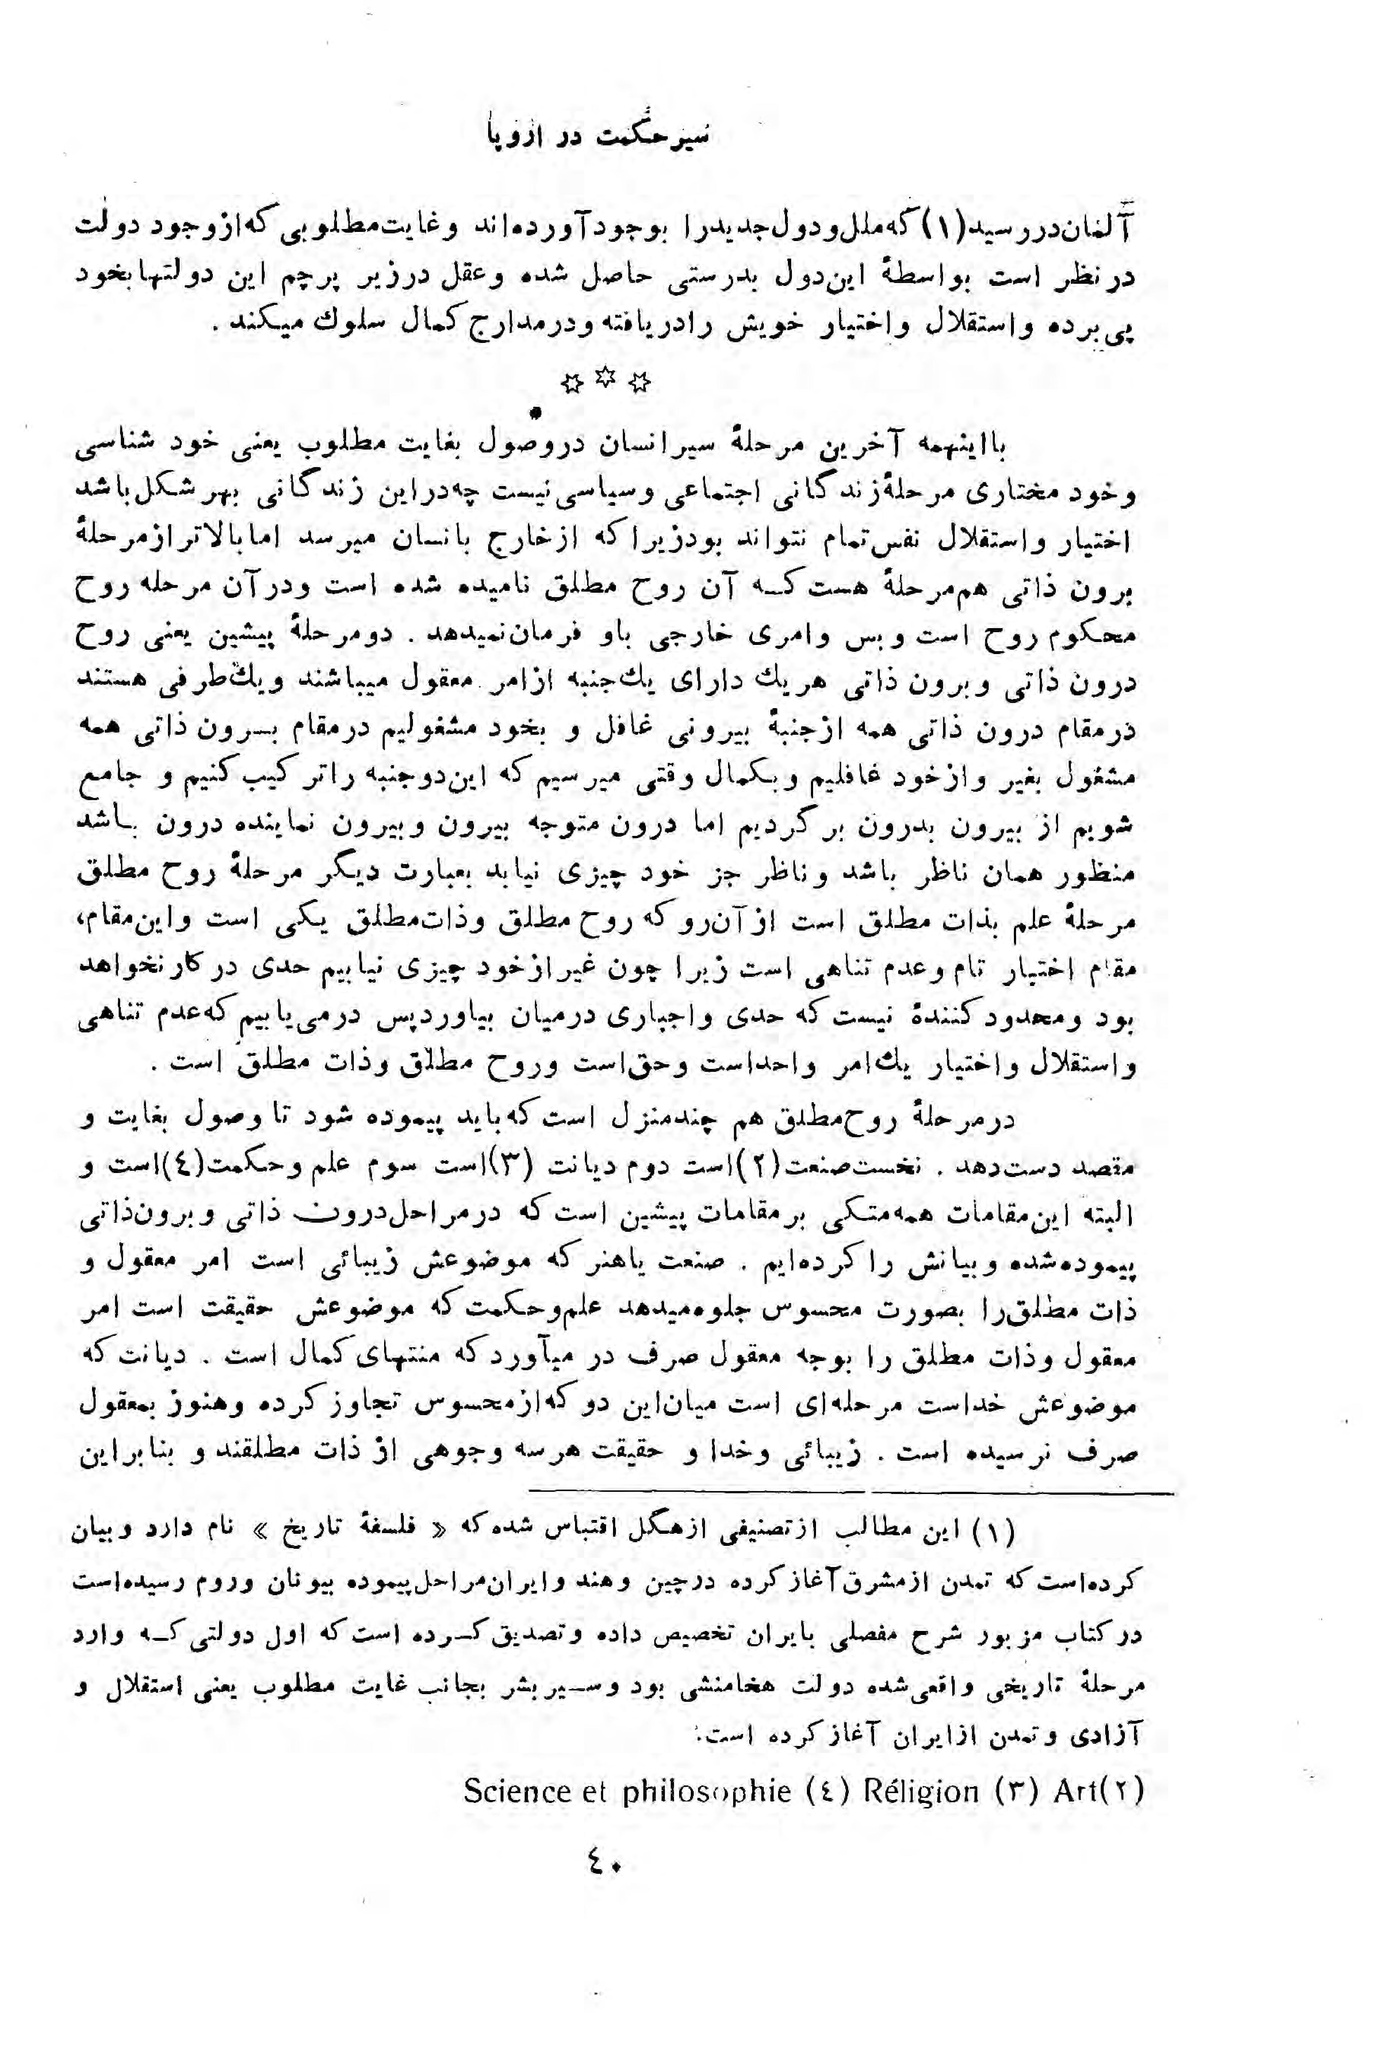 سیر حکمت در اروپا
آلمان در رسید (۱) که ملل و دول جدید را بوجود آورده‌اند و غایت مطلوبی که از وجود دولت
در نظر است بواسطهٔ این دول بدرستی حاصل شده و عقل در زیر پرچم این دولتها بخود
پی برده و استقلال و اختیار خویش را دریافته و در مدارج کمال سلوك میکند .
✡ ✡ ✡
با اینهمه آخرین مرحلهٔ سیر انسان در وصول بغایت مطلوب یعنی خود شناسی
و خود مختاری مرحلهٔ زندگانی اجتماعی و سیاسی نیست چه در این زندگانی بهر شکل باشد
اختیار و استقلال نفس تمام نتواند بود زیرا که از خارج بانسان میرسد اما بالاتر از مرحلهٔ
برون ذاتی هم مرحلهٔ هست کـه آن روح مطلق نامیده شده است و در آن مرحله روح
محکوم روح است و بس و امری خارجی باو فرمان نمیدهد . دو مرحلهٔ پیشین یعنی روح
درون ذاتی و برون ذاتی هر یك دارای یك جنبه از امر معقول میباشند و یك طرفی هستند
در مقام درون ذاتی همه از جنبهٔ بیرونی غافل و بخود مشغولیم در مقام بـرون ذاتی همه
مشغول بغیر و از خود غافلیم و بکمال وقتی میرسیم که این دو جنبه را ترکیب کنیم و جامع
شویم از بیرون بدرون برگردیم اما درون متوجه بیرون و بیرون نماینده درون بـاشد
منظور همان ناظر باشد و ناظر جز خود چیزی نیابد بعبارت دیگر مرحلهٔ روح مطلق
مرحلهٔ علم بذات مطلق است از آن‌رو که روح مطلق و ذات مطلق یکی است و این مقام،
مقام اختیار تام و عدم تناهی است زیرا چون غیر از خود چیزی نیابیم حدی در کار نخواهد
بود و محدود کنندهٔ نیست که حدی و اجباری در میان بیاورد پس در می‌یابیم که عدم تناهی
و استقلال و اختیار یك امر واحد است و حق است و روح مطلق و ذات مطلق است .
در مرحلهٔ روح مطلق هم چند منزل است که باید پیموده شود تا وصول بغایت و
مقصد دست دهد . نخست صنعت (۲) است دوم دیانت (۳) است سوم علم و حکمت (٤) است و
البته این مقامات همه متکی بر مقامات پیشین است که در مراحل درون ذاتی و برون ذاتی
پیموده شده و بیانش را کرده‌ایم . صنعت یا هنر که موضوعش زیبائی است امر معقول و
ذات مطلق را بصورت محسوس جلوه میدهد علم و حکمت که موضوعش حقیقت است امر
معقول و ذات مطلق را بوجه معقول صرف در میآورد که منتهای کمال است . دیانت که
موضوعش خداست مرحله‌ای است میان این دو که از محسوس تجاوز کرده و هنوز بمعقول
صرف نرسیده است . زیبائی و خدا و حقیقت هر سه وجوهی از ذات مطلقند و بنابراین
(۱) این مطالب از تصنیفی از هگل اقتباس شده که « فلسفهٔ تاریخ » نام دارد و بیان
کرده‌است که تمدن از مشرق آغاز کرده در چین و هند و ایران مراحل پیموده بیونان و روم رسیده‌است
در کتاب مزبور شرح مفصلی بایران تخصیص داده و تصدیق کـرده است که اول دولتی کـه وارد
مرحلهٔ تاریخی واقعی شده دولت هخامنشی بود و سـیر بشر بجانب غایت مطلوب یعنی استقلال و
آزادی و تمدن از ایران آغاز کرده است.
Science et philosophie (٤) Réligion (۳) Art(۲)
٤۰